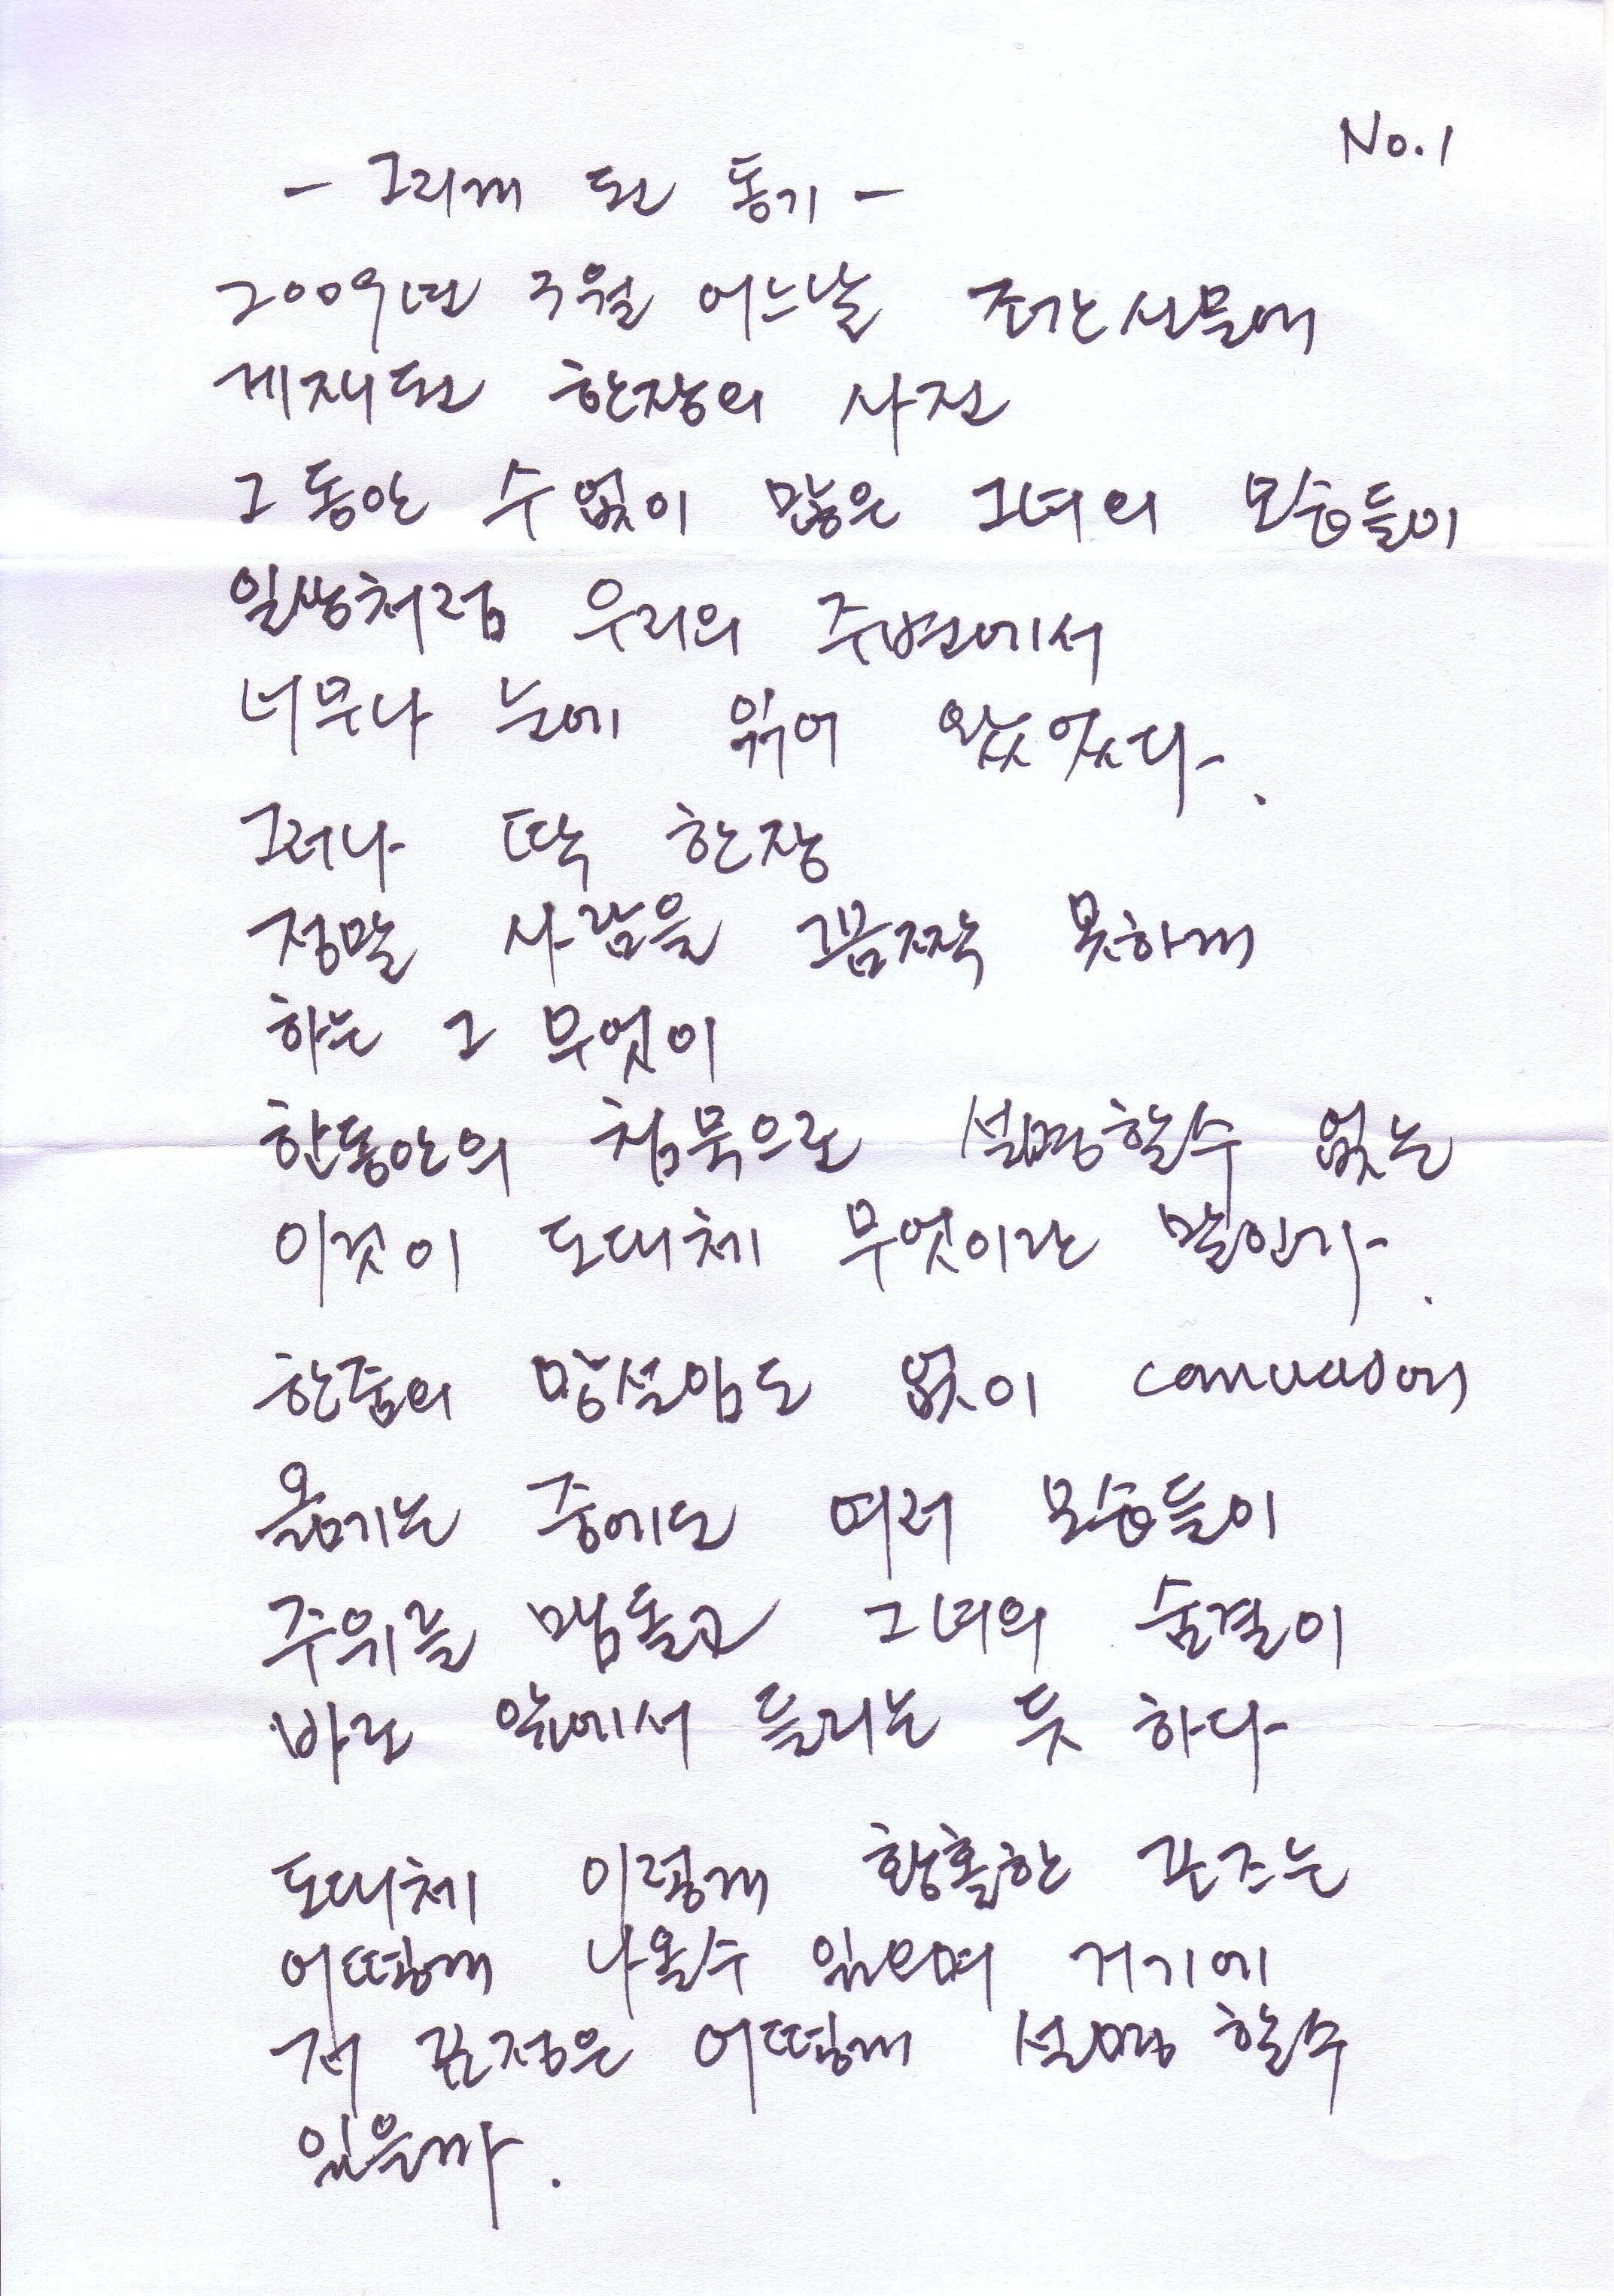 No.1
- 그리게 된 동기 -
2009년 3월 어느날 조간신문에
게재된 한장의 사진
그동안 수없이 많은 그녀의 모습들이
일상처럼 우리의 주변에서
너무나 눈에 익어 왔었다.
그러나 딱 한장
정말 사람을 꼼짝 못하게
하는 그 무엇이
한동안의 침묵으로 설명할수 없는
이것이 도대체 무엇이란 말인가.
한줌의 망설임도 없이 canvas에
옮기는 중에도 여러 모습들이
주위를 맴돌고 그녀의 숨결이
바로 앞에서 들리는 듯 하다
도대체 이렇게 황홀한 포즈는
어떻게 나올수 있으며 거기에
저 표정은 어떻게 설명 할수
있을까.